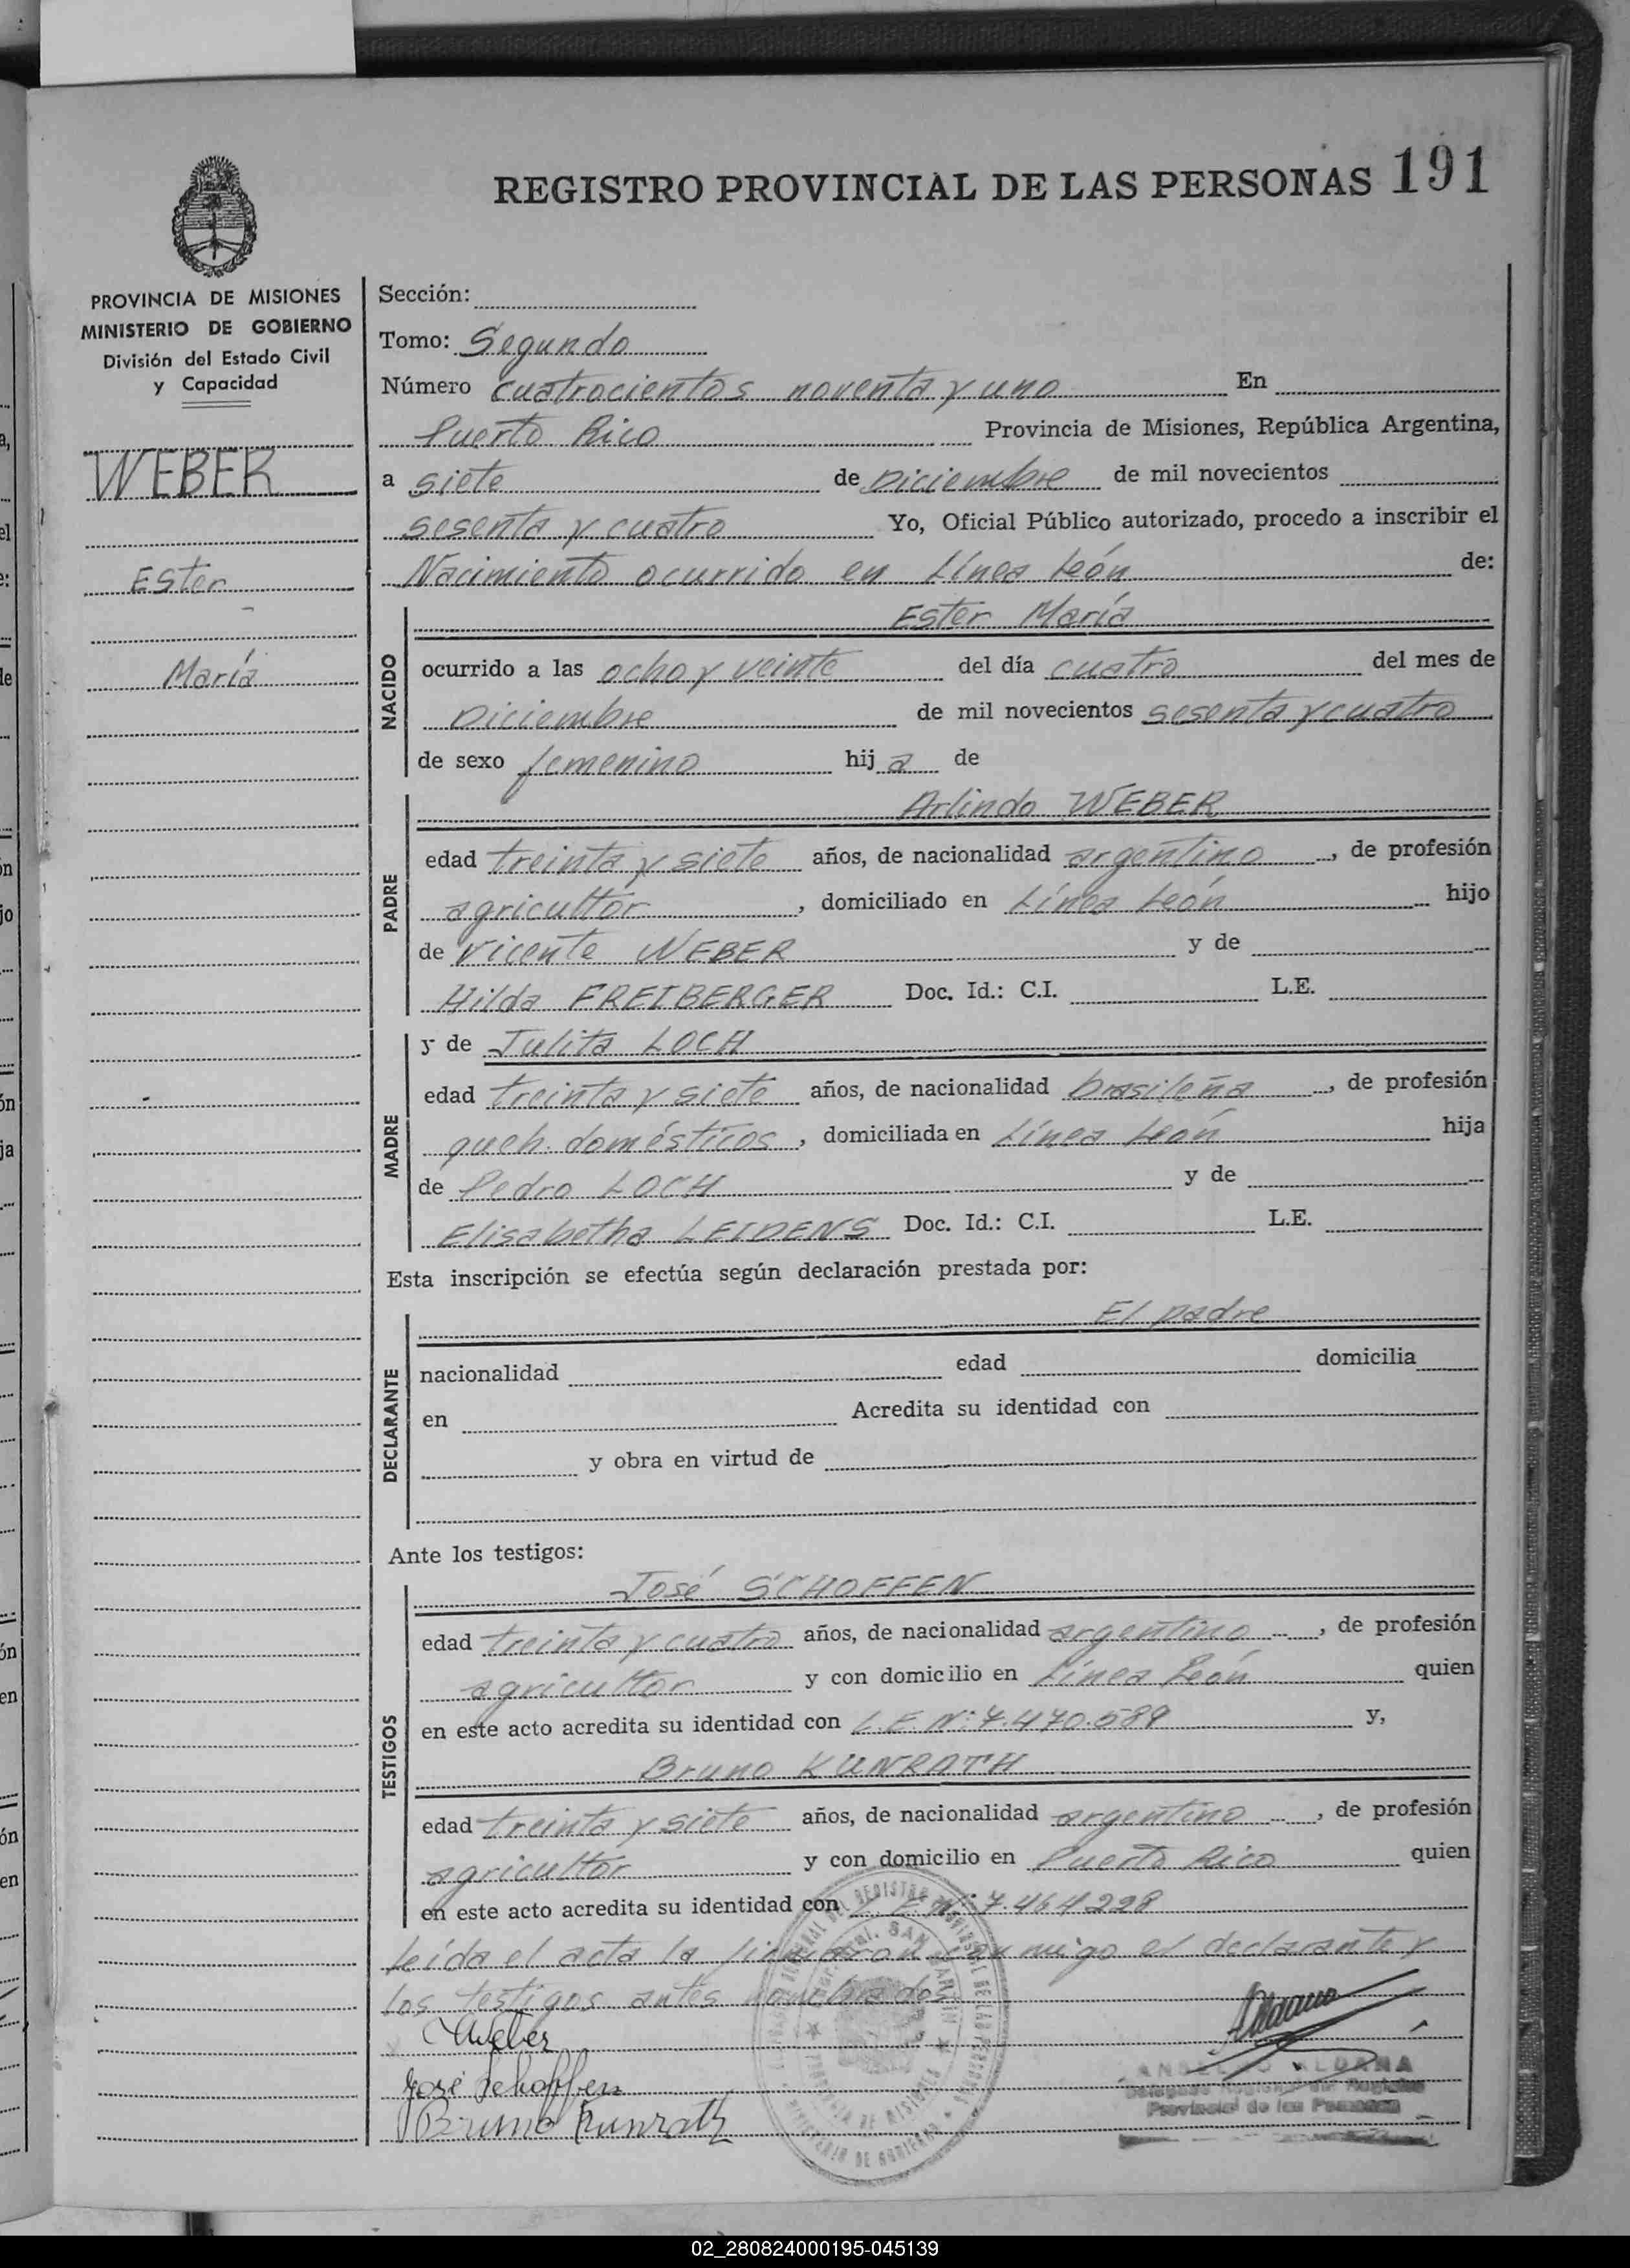 REGISTRO PROVINCIAL DE LAS PERSONAS 191
PROVINCIA DE MISIONES
MINISTERIO DE GOBIERNO
División del Estado Civil
y Capacidad
WEBER
Ester
María
Sección:
Tomo: Segundo
Número cuatrocientos noventa y uno En
Puerto Rico Provincia de Misiones, República Argentina,
a siete de Diciembre de mil novecientos
sesenta y cuatro Yo, Oficial Público autorizado, procedo a inscribir el
Nacimiento ocurrido en Línea León de:
NACIDO
Ester María
ocurrido a las ocho y veinte del día cuatro del mes de
Diciembre de mil novecientos sesenta y cuatro
de sexo femenino hij a de
PADRE
Arlindo WEBER
edad treinta y siete años, de nacionalidad argentino, de profesión
agricultor, domiciliado en Línea León hijo
de Vicente WEBER y de
Hilda FREIBERGER Doc. Id.: C.I. L.E.
MADRE
y de Julita LOCH
edad treinta y siete años, de nacionalidad brasileña, de profesión
queh. domésticos, domiciliada en Línea León hija
de Pedro LOCH y de
Elisabetha LEIDENS Doc. Id.: C.I. L.E.
Esta inscripción se efectúa según declaración prestada por:
DECLARANTE
El padre
nacionalidad edad domicilia
en Acredita su identidad con
y obra en virtud de
Ante los testigos:
TESTIGOS
José SCHOFFEN
edad treinta y cuatro años, de nacionalidad argentino, de profesión
agricultor y con domicilio en Línea León quien
en este acto acredita su identidad con L.E. Nº: 7.470.589 y,
Bruno KUNRATH
edad treinta y siete años, de nacionalidad argentino, de profesión
agricultor y con domicilio en Puerto Rico quien
en este acto acredita su identidad con L.E. Nº: 7.464228
Leída el acta la firmaron conmigo el declarante y
los testigos antes nombrados
AWeber
José Schoffen
Bruno Kunrath
Aldana
ALDANA
Delegado Regional del Registro
Provincial de las Personas
02_280824000195-045139